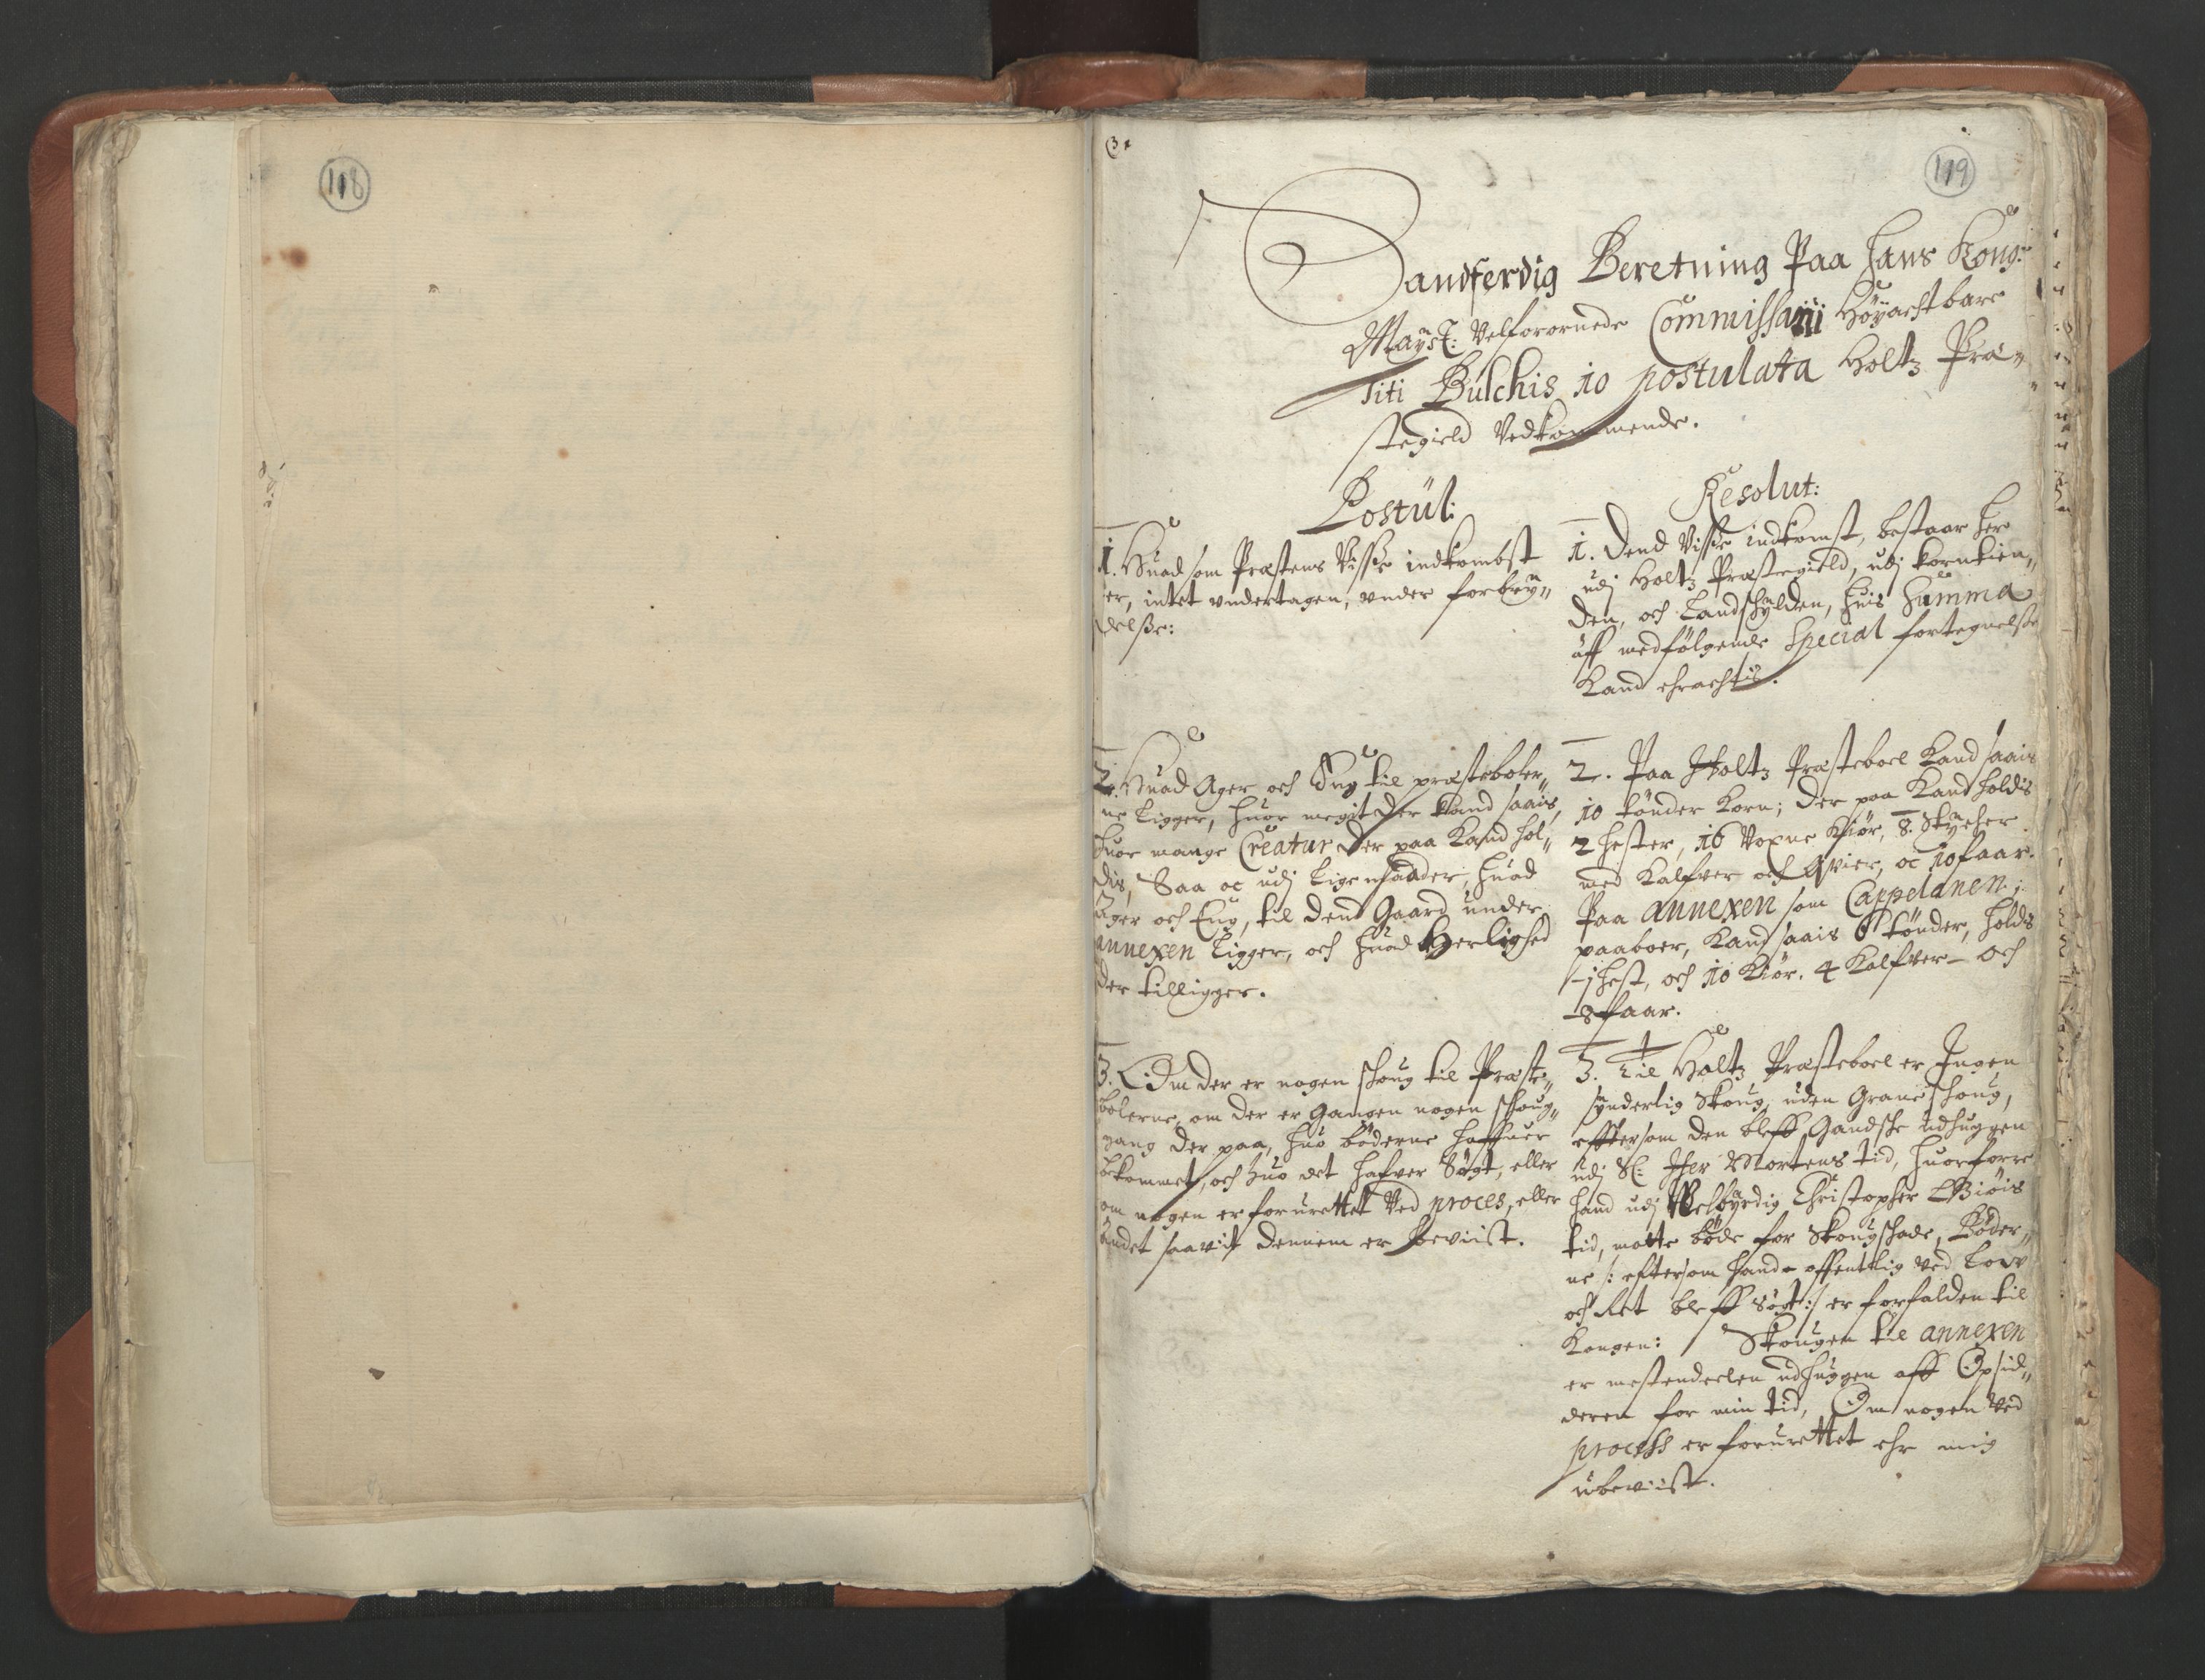 118
119
Sandferdig Beretning Paa Hans Kong:
Mayst: Velforornede Commissarii Höyachtbare
Titi Bulchis 10 postulata Holtz Præ„
stegield Vedkommende.
Postul:
1. Huad som Præstens Visse indkombst
er, intet vndertagen, vnder forbry„
delsse:
2. Huad Ager och Eng til præsteboler„
ne ligger, huor megit der kand saais,
huor mange Creatur der paa kand hol„
dis, Saa oc udj ligemaader, huad
Ager och Eng, til dend Gaard under
annexen ligger, och huad Herlighed
der tilligger.
3. Om der er nogen schoug til Præste„
bolerne, om der er Gangen nogen schoug„
gang der paa, huo böderne haffuer
bekommet, och huo det hafver Sögt, eller
om nogen er foruretttet Ved proces, eller
andet saavit dennem er beviist.
Resolut:
1. Dend Visse indkomst, bestaar her
udj Holtz Præstegield, udj kornthien„
den, och Landschylden, huis Summa
aff medfölgende Special fortegnelsse
Kand erachtis.
2. Paa Holtz Præsteboel kand saais
10 tönder korn; der paa kand holdis
2 hester, 16 Voxne Kiör, 8. Stycher
med Kalfver och Qvier, oc 10 faar.
Paa annexen som Cappelanen
paaboer, kand saais 6 tönder, holdis
1 hest, och 10 Kiör. 4 Kalfver och
8 faar.
3. Til Holtz Præsteboel er Ingen
synderlig Skoug, uden Graneschoug,
efftersom den bleff Gandsche udhuggen
udj Sl: Her Mortens tid, huorforre
hand udj Velbyrdig Christopher Giöis
tid, motte böde for Skougschade, Böder„
ne /: eftersom hand offentlig ved Low
och Ret bleff sögt :/ er forfalden til
Kongen: Skougen til annexen
er mestendeelen udhuggen aff Opsid„
deren for min tid, Om nogen Ved
process er forurettet ehr mig
ubeviist.